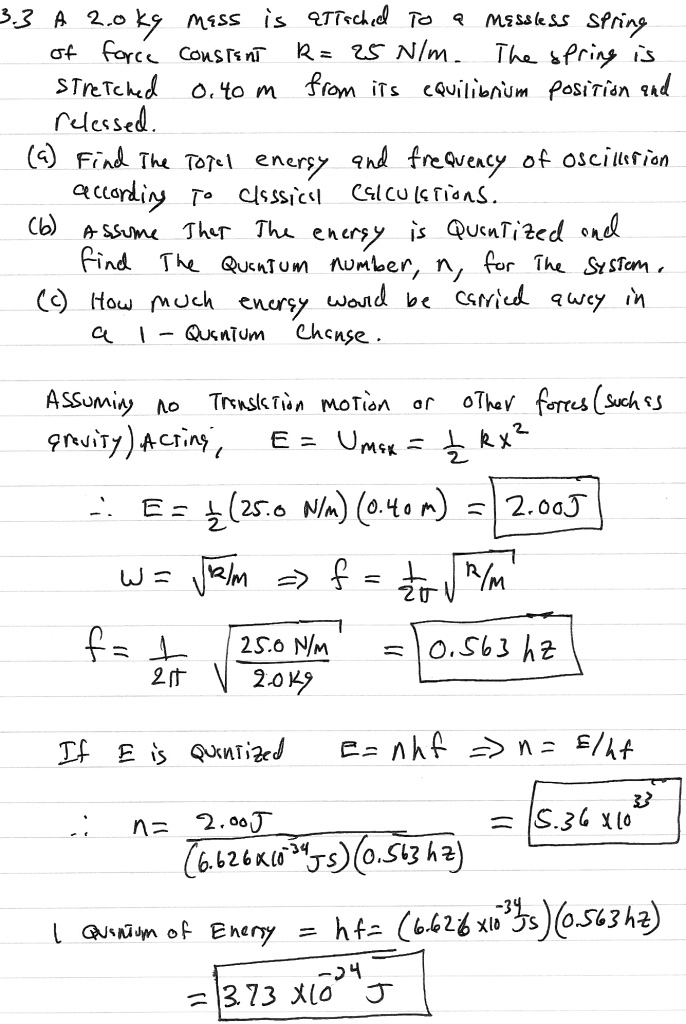 3.3 A 2.0 kg mass is attached to a massless spring
of force constant k = 25 N/m. The spring is
stretched 0.40 m from its equilibrium position and
released.
(a) Find the total energy and frequency of oscillation
according to classical calculations.
(b) Assume that the energy is quantized and
find the quantum number, n, for the system.
(c) How much energy would be carried away in
a 1-quantum change.
Assuming no translation motion or other forces (such as
gravity) acting, E = Umax = 1/2 kx²
∴ E = 1/2 (25.0 N/m) (0.40 m) = 2.00J
ω = √k/m ⇒ f = 1/2π √k/m
f = 1/2π √25.0 N/m / 2.0 kg = 0.563 hz
If E is quantized E = nhf ⇒ n = E/hf
∴ n = 2.00J / (6.626x10⁻³⁴Js)(0.563 hz) = 5.36 x10³³
1 Quantum of Energy = hf = (6.626 x10⁻³⁴Js)(0.563hz)
= 3.73 x10⁻²⁴ J